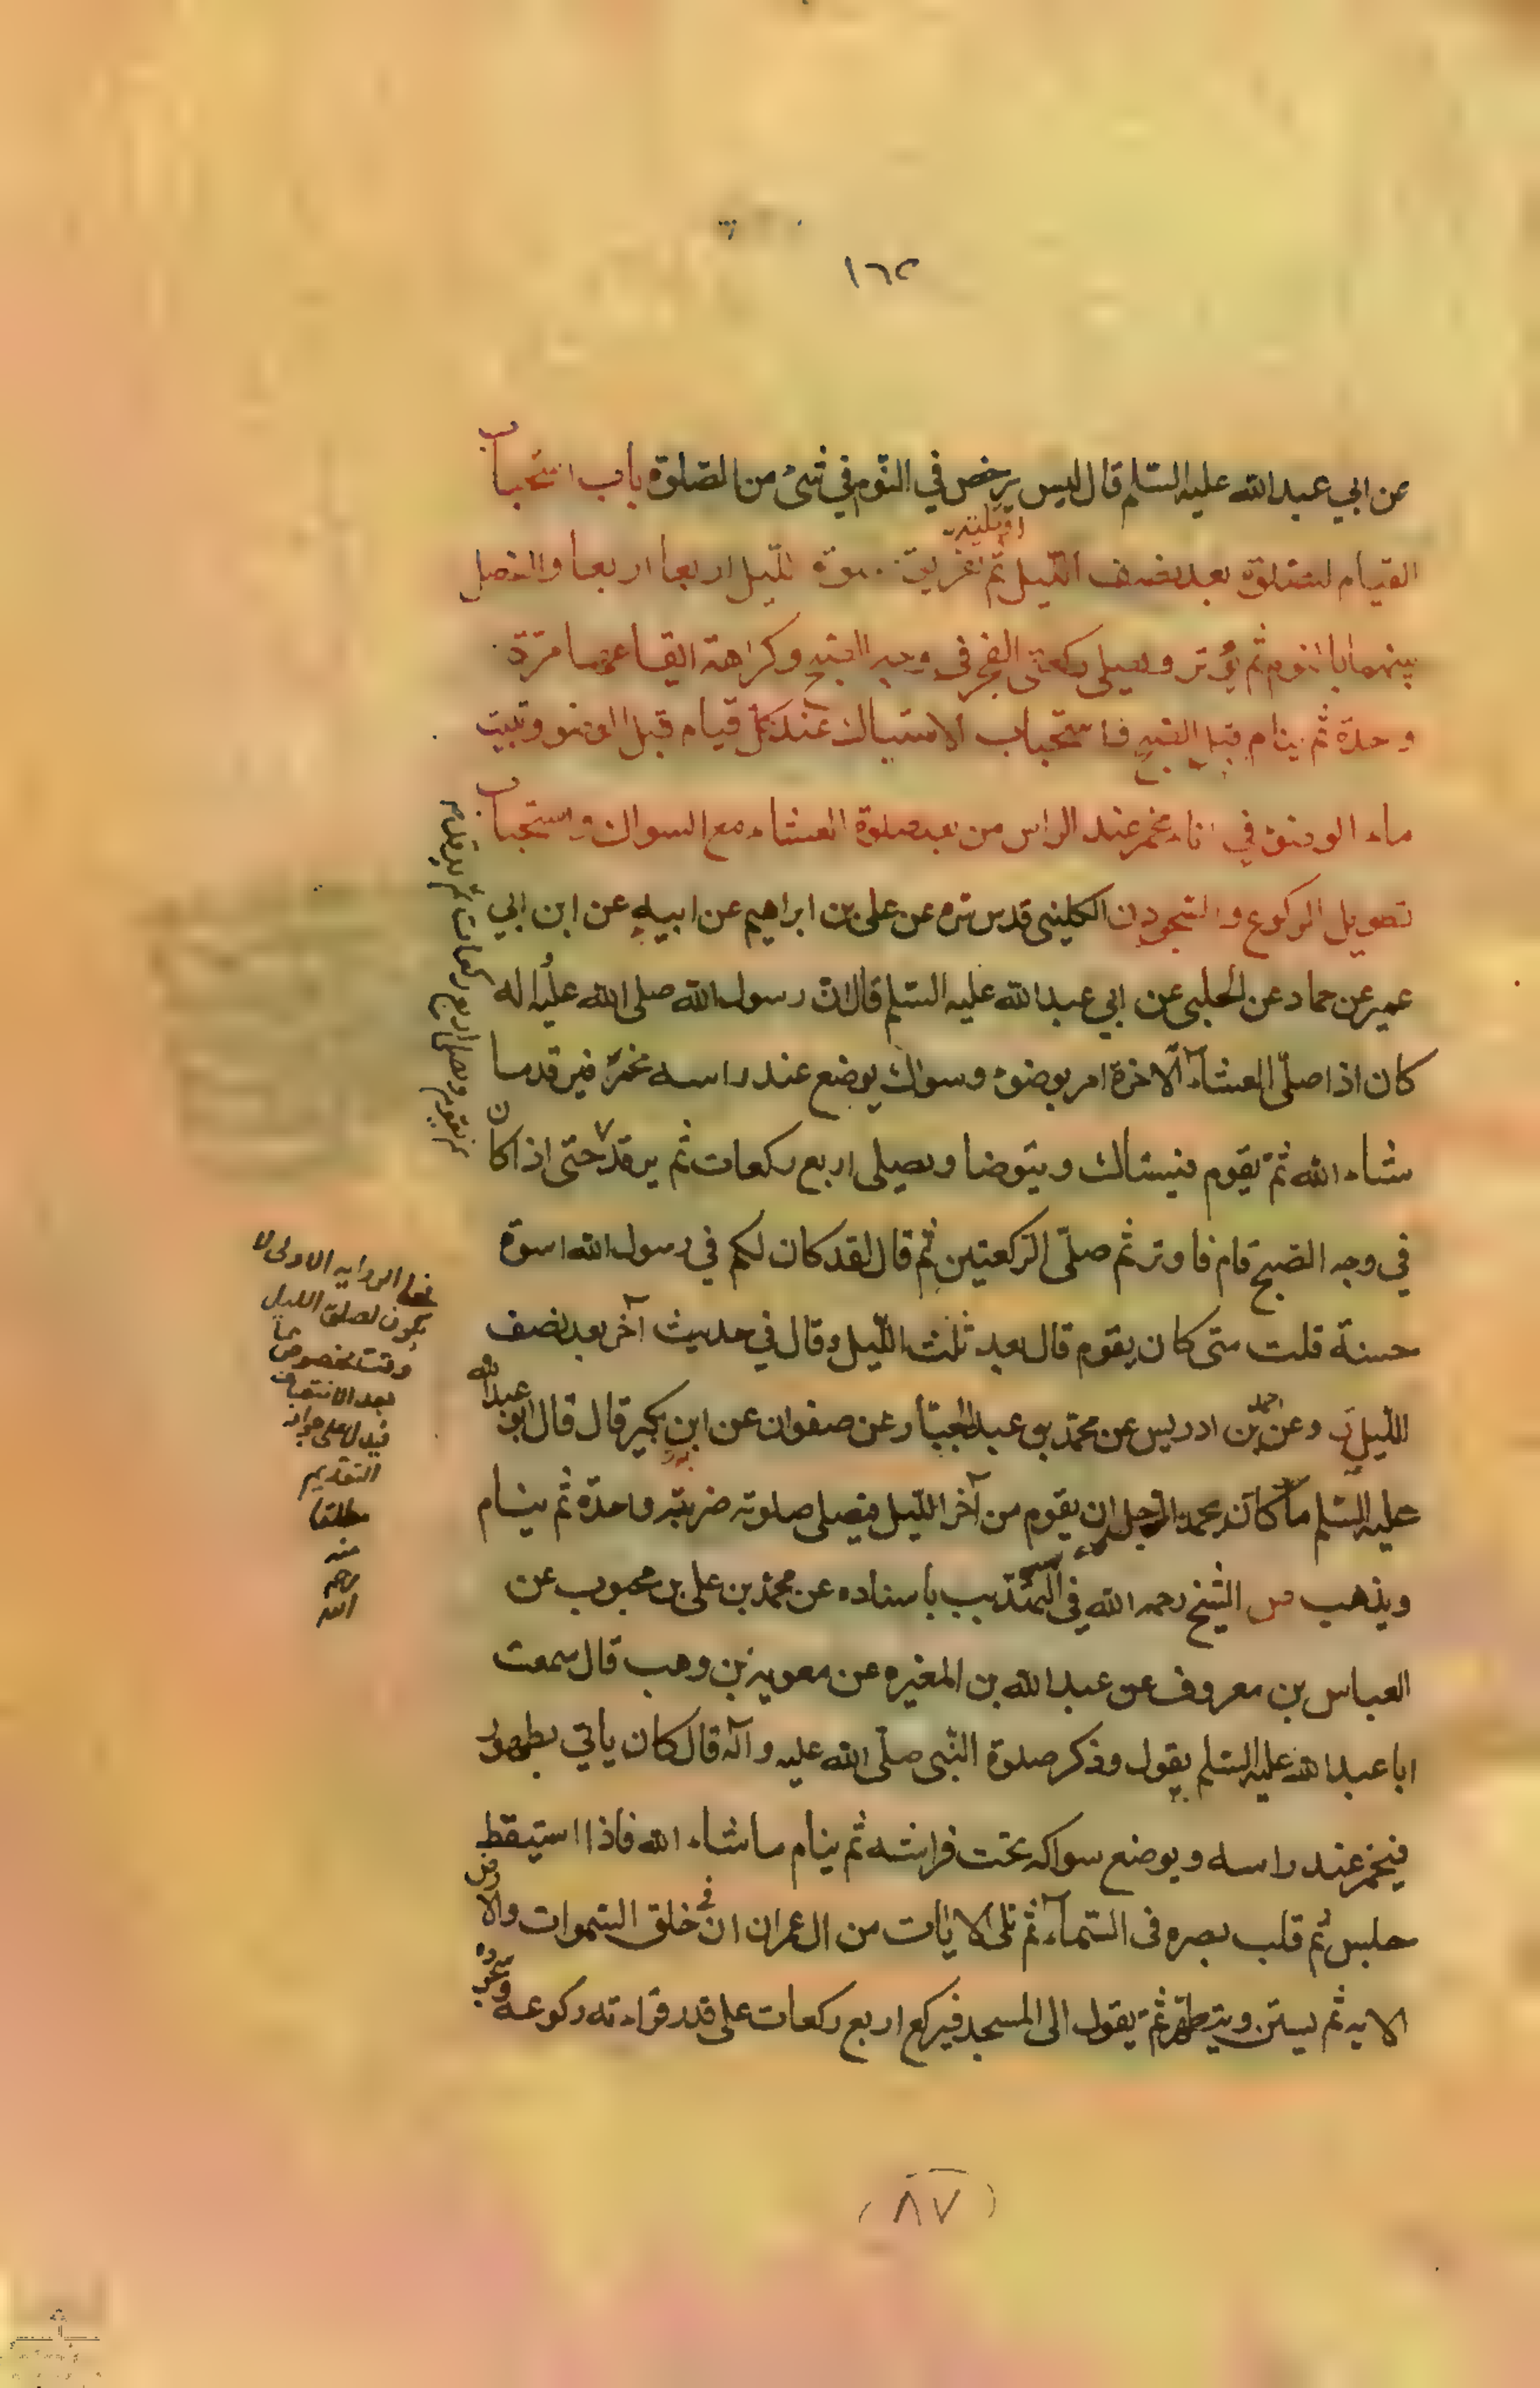 ١٦٢
عن ابي عبدالله عليه السلم قال ليس يرخص في النوم في شئ من الصلوة باب استحباب
القيام لصلوة بعد نصف الليل او ثلثيه ثم تفريق صلوة الليل اربعا اربعا والفصل
بينهما بالنوم ثم يوتر ويصلي ركعتي الفجر في وجه الصبح وكراهة ايقاعها مرة
واحدة ثم ينام قبل الصبح واستحباب الاستياك عند كل قيام قبل الوضوء وتبييت
ماء الوضوء في اناء مخمر عند الراس من بعد صلوة العشاء مع السواك واستحباب
تطويل الركوع والسجود ن الكليني قدس سره عن علي بن ابراهيم عن ابيه عن ابن ابي
عمير عن حماد عن الحلبي عن ابي عبدالله عليه السلم قال ان رسول الله صلى الله عليه اله
كان اذا صلى العشاء الاخرة امر بوضوء وسواك يوضع عند راسه مخمرا فيرقد ما
شاء الله ثم يقوم فيستاك ويتوضا ويصلي اربع ركعات ثم يرقد حتى اذا كان
في وجه الصبح قام فاوتر ثم صلى الركعتين ثم قال لقد كان لكم في رسول الله اسوة
حسنة قلت متى كان يقوم قال بعد ثلث الليل وقال في حديث آخر بعد نصف
الليل وعن احمد بن ادريس عن محمد بن عبد الجبار عن صفوان عن ابن بكير قال قال ابو عبدالله
عليه السلم ما كان يحمد الرجل ان يقوم من آخر الليل فيصلي صلوته ضربة واحدة ثم ينام
ويذهب الشيخ رحمه الله في التهذيب باسناده عن محمد بن علي بن محبوب عن
العباس بن معروف عن عبدالله بن المغيره عن معوية بن وهب قال سمعت
ابا عبدالله عليه السلم يقول وذكر صلوة النبي صلى الله عليه وآله قال كان ياتي بطهور
فيخمر عند راسه ويوضع سواكه تحت فراشه ثم ينام ما شاء الله فاذا استيقظ
جلس ثم قلب بصره في السماء ثم تلى الايات من ال عمران ان في خلق السموات والارض
الايه ثم يستن ويتطهر ثم يقول الى المسجد فيركع اربع ركعات على قدر قراءته ركوعه وسجوده
ثم يرقد ثم يقوم ويصلي اربع ركعات
فعلى الروايه الاولى لا
يكون لصلوة الليل
وقت مخصوص
بعد الانتصاف
فيدل على جواز
التقديم
مطلقا
منه
رحمه
الله
(٨٧)